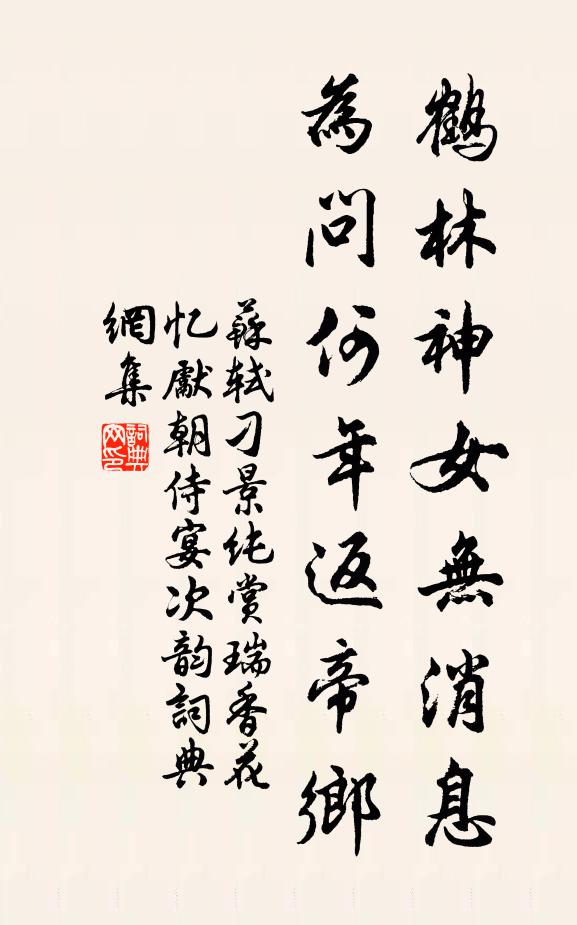 鶴林神女無消息
為問何年返帝鄉
蘇軾刁景純賞瑞香花
忆獻朝侍宴次韵詞典
網集
詞典网印